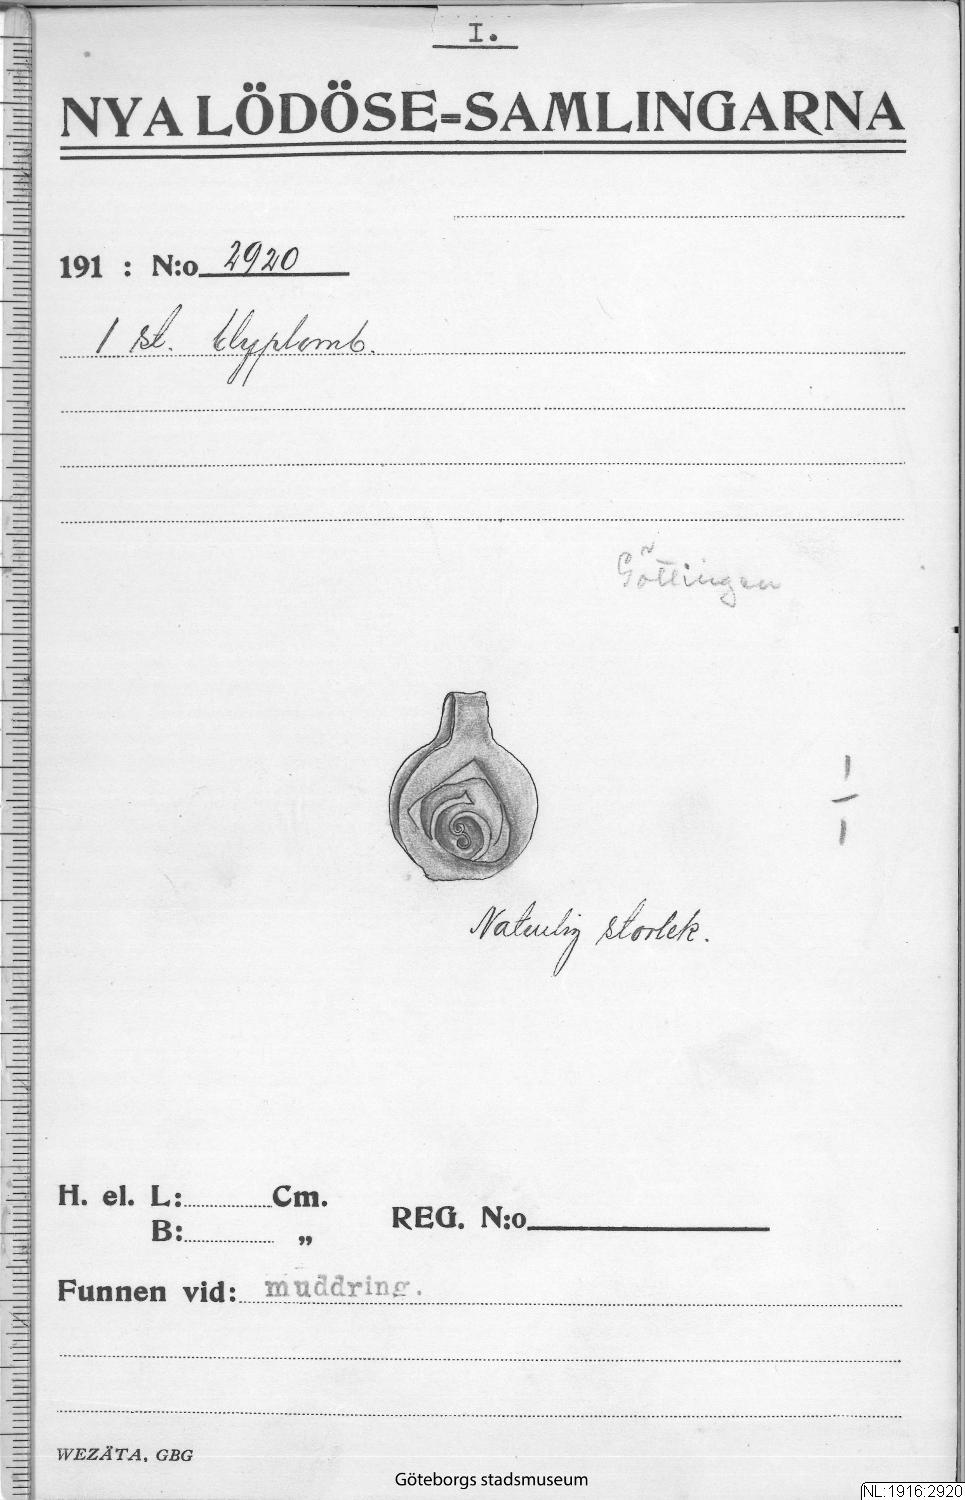 I.
NYA LÖDÖSE-SAMLINGARNA
191 : N:o 2920
1 st. blyplomb.
Göttingen
1/1
Naturlig storlek.
H. el. L: Cm.
B: „
REG. N:o
Funnen vid: muddring.
WEZÄTA, GBG
Göteborgs stadsmuseum
NL:1916:2920